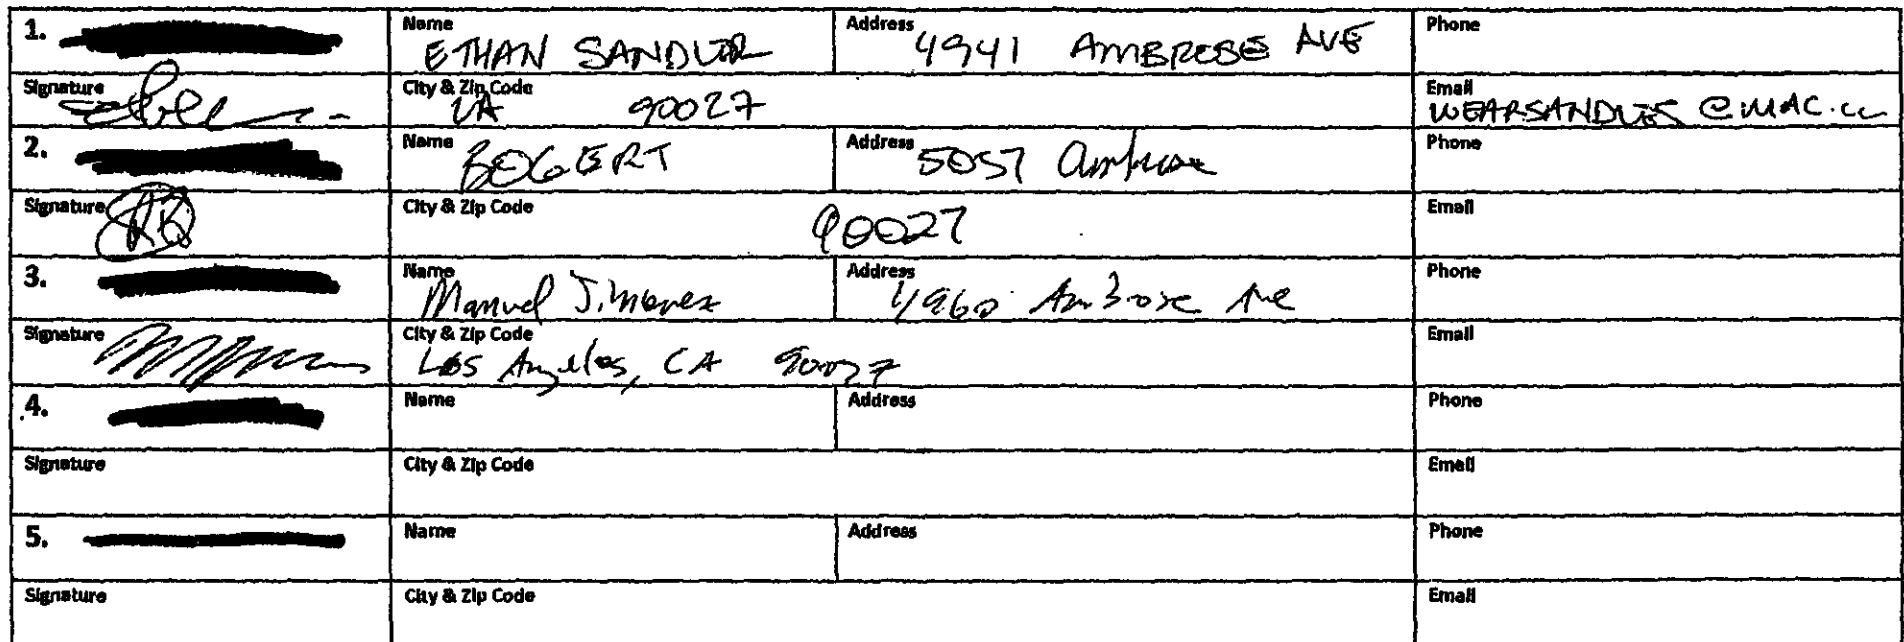 1. Name ETHAN SANDLER Address 4941 AMBROSE AVE Phone
Signature City & Zip Code LA 90027 Email WEARSANDLES @MAC.
2. Name BOGERT Address 5057 Ambrose Phone
Signature City & Zip Code 90027 Email
3. Name Manuel Jimenez Address 4960 Ambrose Ave Phone
Signature City & Zip Code Los Angeles, CA 90027 Email
4. Name Address Phone
Signature City & Zip Code Email
5. Name Address Phone
Signature City & Zip Code Email